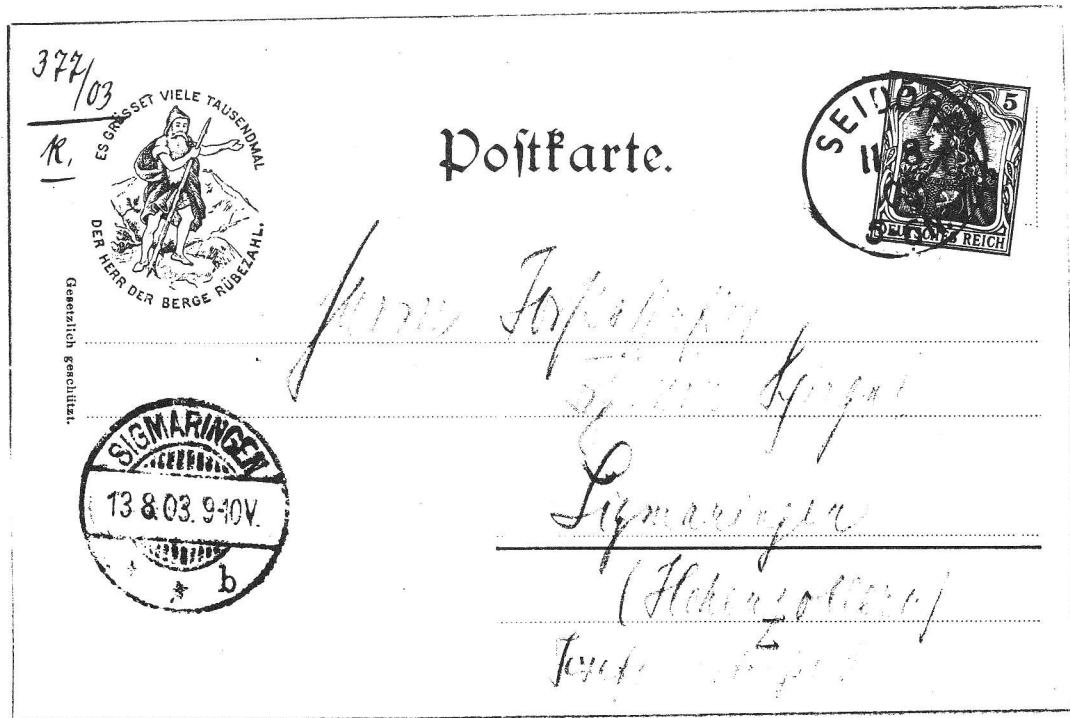 377/03
R.
ES GRÜSSET VIELE TAUSENDMAL
DER HERR DER BERGE RÜBEZAHL.
Gesetzlich geschützt.
Postkarte.
SEIDOR
11 8
03
5
DEUTSCHES REICH
Herrn
Sigmaringen
(Hohenzollern)
SIGMARINGEN
13 8.03. 9-10V.
* * b